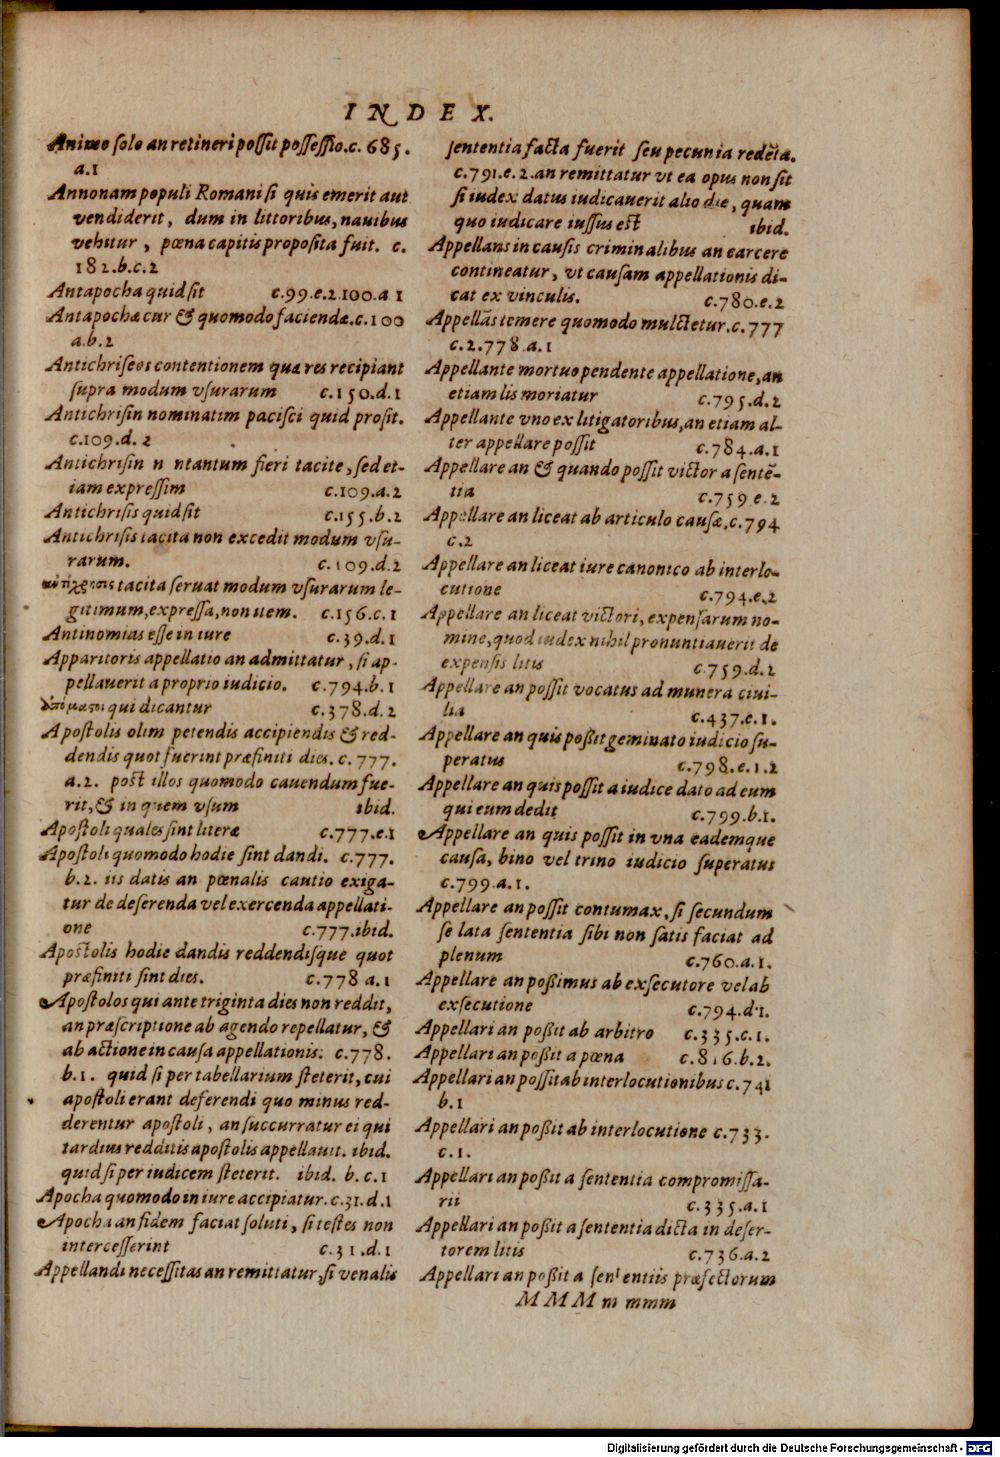 INDEX.
Animo solo an retineri possit possessio.c. 685.
a.1
Annonam populi Romani si quis emerit aut
vendiderit, dum in littoribus, nauibus
vehitur, pœna capitis proposita fuit. c.
182.b.c.2
Antapocha quid sit c.99.e.2.100.a 1
Antapochæ cur & quomodo faciendæ.c.100
a.b.2
Antichriseos contentionem quæ res recipiant
supra modum vsurarum c.150.d.1
Antichrisin nominatim pacisci quid prosit.
c.109.d.2
Antichrisin n ntantum fieri tacite, sed et-
iam expressim c.109.a.2
Antichrisis quid sit c.155.b.2
Antichrisis tacita non excedit modum vsu-
rarum. c.109.d.2
tacita seruat modum vsurarum le-
gitimum, expressa, non item. c.156.c.1
Antinomias esse in iure c.39.d.1
Apparitoris appellatio an admittatur, si ap-
pellauerit a proprio iudicio. c.794.b.1
qui dicantur c.378.d.2
Apostolis olim petendis accipiendis & red-
dendis quot fuerint præfiniti dies. c.777.
a.2. post illos quomodo cauendum fue-
rit, & in quem vsum ibid.
Apostoli quales sint literæ c.777.e.1
Apostoli quomodo hodie sint dandi. c.777.
b.2. iis datis an pœnalis cautio exiga-
tur de deserenda vel exercenda appellati-
one c.777.ibid.
Apostolis hodie dandis reddendisque quot
præfiniti sint dies. c.778 a.1
Apostolos qui ante triginta dies non reddit,
an præscriptione ab agendo repellatur, &
ab actione in causa appellationis: c.778.
b.1. quid si per tabellarium steterit, cui
apostoli erant deferendi quo minus red-
derentur apostoli, an succurratur ei qui
tardius redditis apostolis appellauit. ibid.
quid si per iudicem steterit. ibid. b.c.1
Apocha quomodo in iure accipiatur.c.31.d.1
Apocha an fidem faciat soluti, si testes non
intercesserint c.31.d.1
Appellandi necessitas an remittatur, si venalis
sententia facta fuerit seu pecunia redẽta.
c.791.e.2.an remittatur vt ea opus non sit
si iudex datus iudicauerit alio die, quam
quo iudicare iussus est ibid.
Appellans in causis criminalibus an carcere
contineatur, vt causam appellationis di-
cat ex vinculis. c.780.e.2
Appellãs temere quomodo mulctetur.c.777
c.2.778.a.1
Appellante mortuo pendente appellatione, an
etiam lis moriatur c.795.d.2
Appellante vno ex litigatoribus, an etiam al-
ter appellare possit c.784.a.1
Appellare an & quando possit victor a sentẽ-
tia c.759 e.2
Appellare an liceat ab articulo causæ.c.794
c.2
Appellare an liceat iure canonico ab interlo-
cutione c.794.e.2
Appellare an liceat victori, expensarum no-
mine, quod iudex nihil pronuntiauerit de
expensis litis c.759.d.2
Appellare an possit vocatus ad munera ciui-
lia c.437.e.1.
Appellare an quis poßit geminato iudicio su-
peratus c.798.e.1.2
Appellare an quis possit a iudice dato ad eum
qui eum dedit c.799.b.1.
Appellare an quis possit in vna eademque
causa, bino vel trino iudicio superatus
c.799.a.1.
Appellare an possit contumax, si secundum
se lata sententia sibi non satis faciat ad
plenum c.760.a.1.
Appellare an poßimus ab exsecutore vel ab
exsecutione c.794.d.1.
Appellari an poßit ab arbitro c.335.c.1.
Appellari an poßit a pœna c.816.b.2.
Appellari an possit ab interlocutionibus c.741
b.1
Appellari an poßit ab interlocutione c.733.
c.1.
Appellari an poßit a sententia compromissa-
rii c.335.a.1
Appellari an poßit a sententia dicta in deser-
torem litis c.736.a.2
Appellari an poßit a sententiis præfectorum
MMMm mmm
Digitalisierung gefördert durch die Deutsche Forschungsgemeinschaft - DFG